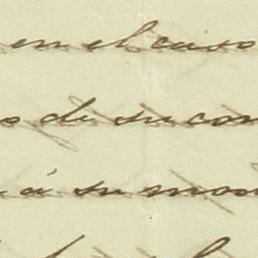 en el caso
o de su con
á su mon